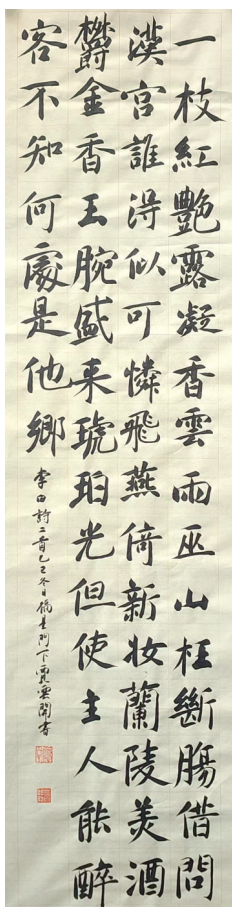 一枝紅艷露凝香雲雨巫山枉斷腸借問
漢宮誰得似可憐飛燕倚新妝蘭陵美酒
欝金香玉腕盛来琥珀光但使主人能醉
客不知何處是他鄉
李白詩二首乙巳冬日門下書